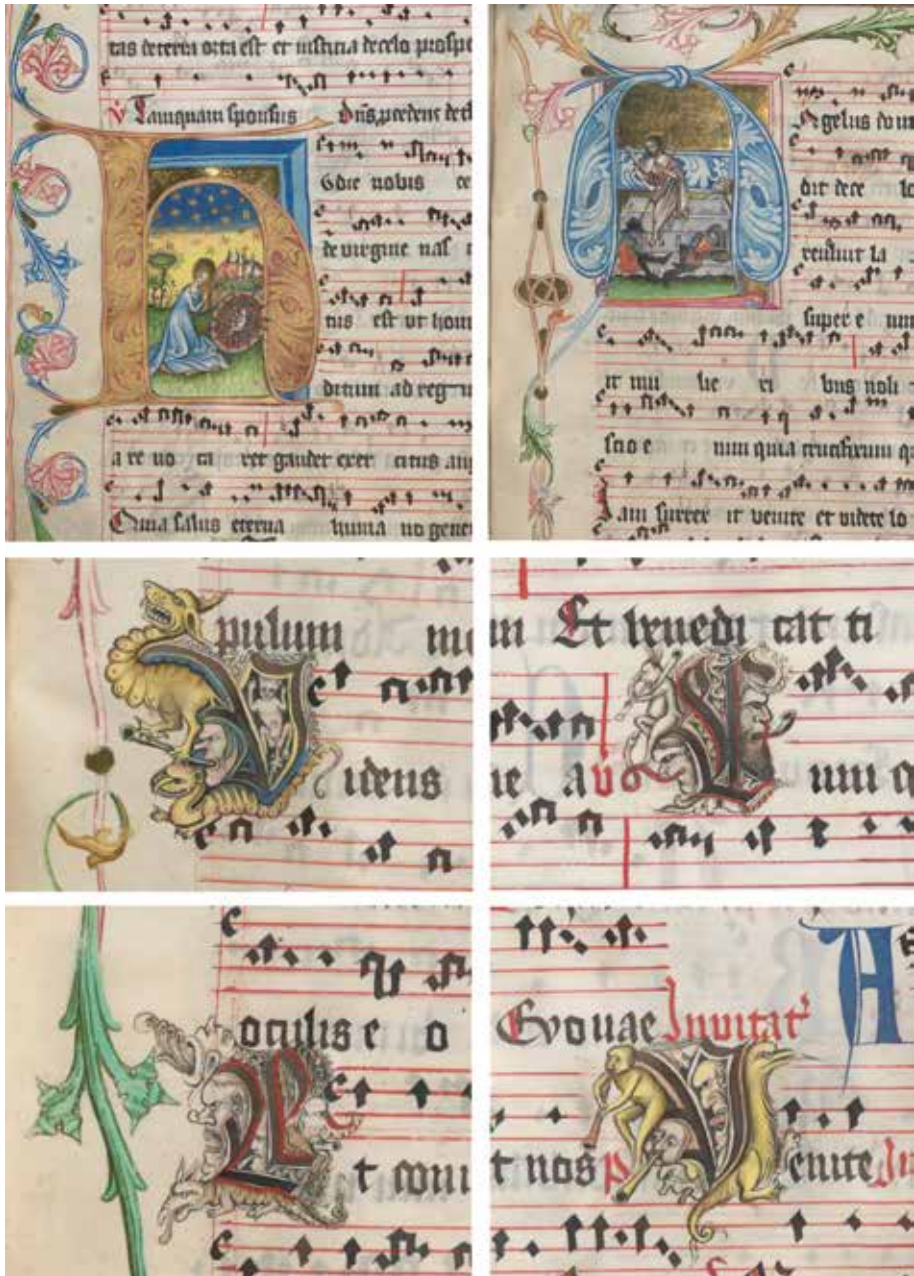 tas deterra orta est et iusticia decelo prospe
V Tamquam sponsus dn̄s ꝓcedens de th
H odie nobis ce
de virgine nas
nis est ut hom
ditum ad reg
a re uo ca ret gaudet exer citus an
Quia salus eterna huma no gene
A ngelus do
dit de ce lo
reuluit la
super e um
it mu li e ri bus noli
scio e nim quia crucifixum q
Iam surrex it venite et videte lo
pulum
V idens
Et benedi cat ti
V
oculis e o
t
Evouae Inuitat
A
t nos p V enite In